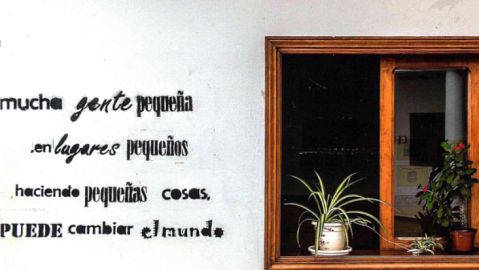 mucha gente pequeña
,en lugares pequeños
haciendo pequeñas cosas,
PUEDE cambiar el mundo